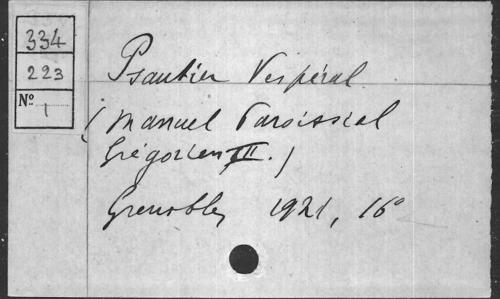 334
223
Nº 1
Psautier Vespéral
(Manuel Paroissial
Grégorien III.)
Grenoble, 1921, 16º